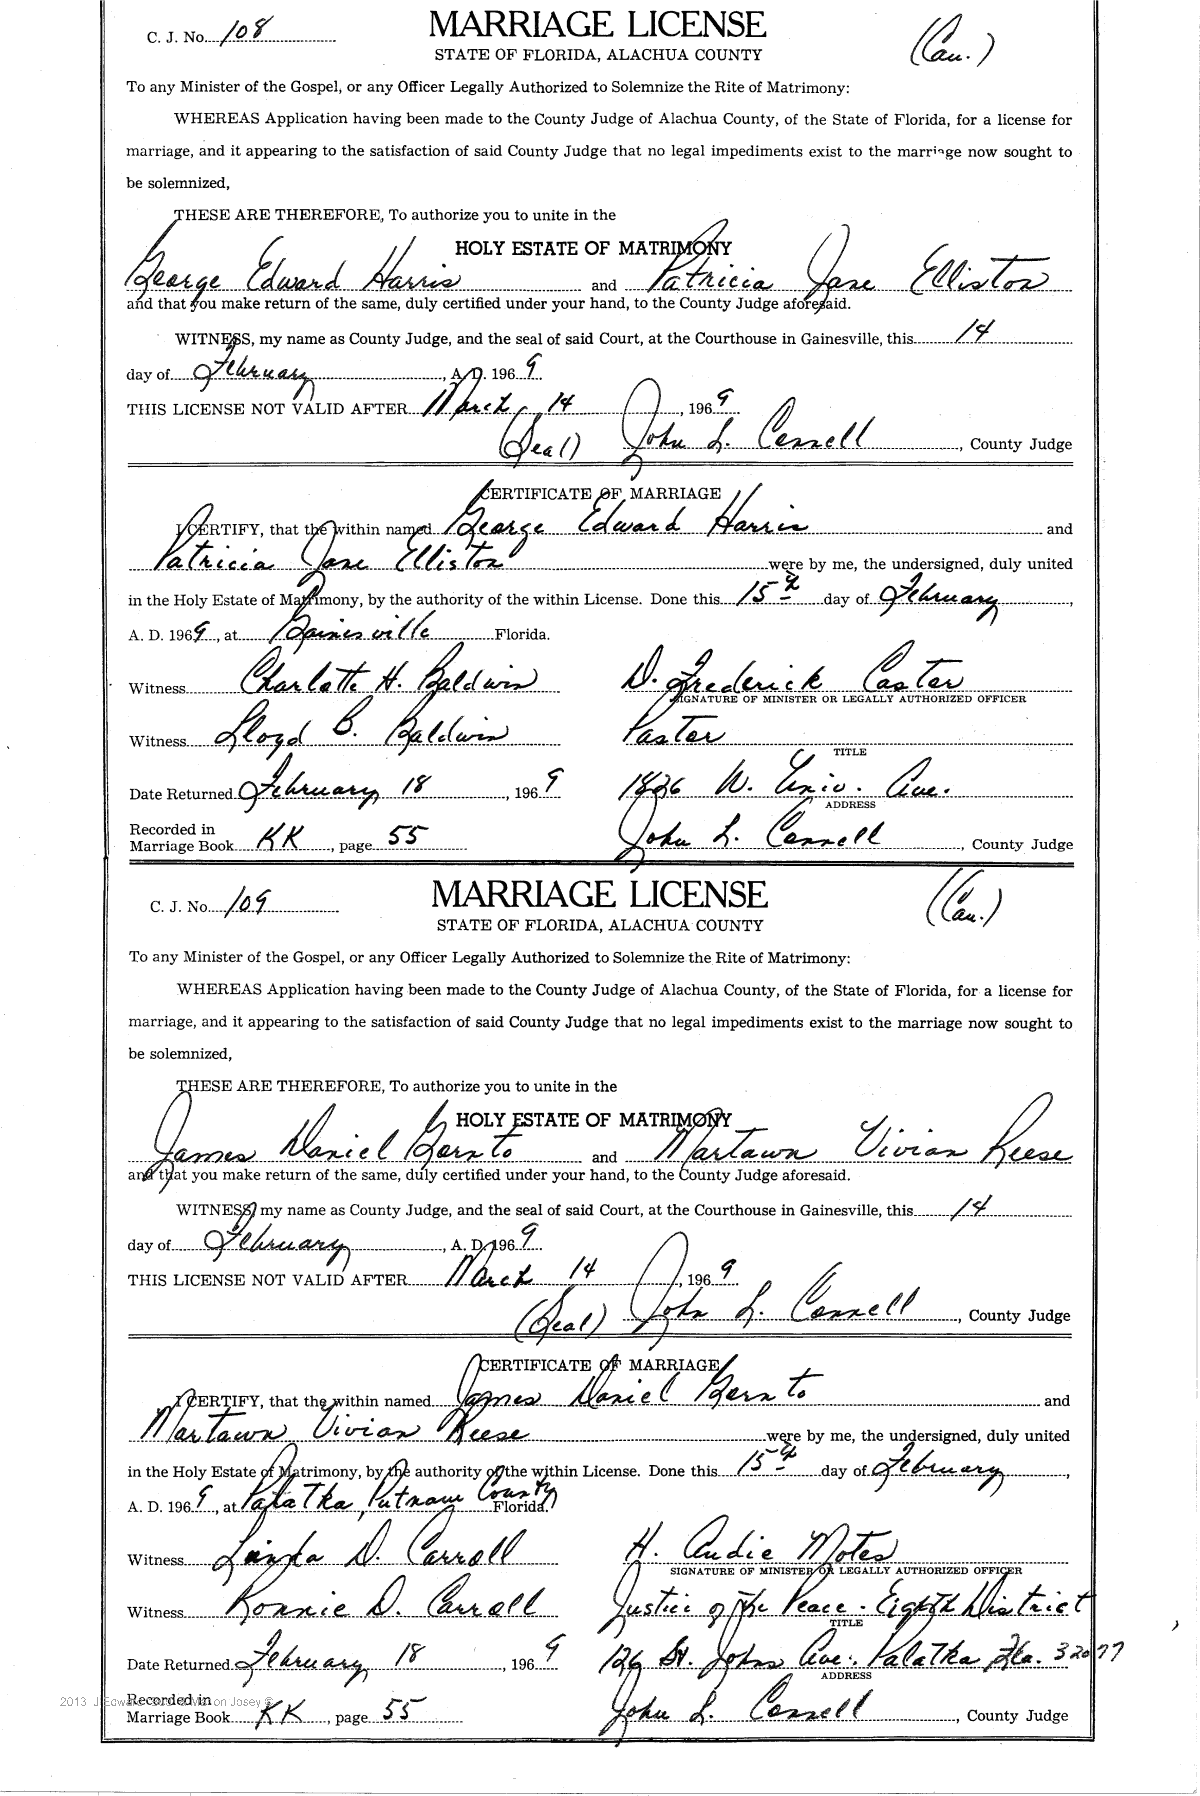 C. J. No. 108
MARRIAGE LICENSE
(Cau.)
STATE OF FLORIDA, ALACHUA COUNTY
To any Minister of the Gospel, or any Officer Legally Authorized to Solemnize the Rite of Matrimony:
WHEREAS Application having been made to the County Judge of Alachua County, of the State of Florida, for a license for
marriage, and it appearing to the satisfaction of said County Judge that no legal impediments exist to the marriage now sought to
be solemnized,
THESE ARE THEREFORE, To authorize you to unite in the
HOLY ESTATE OF MATRIMONY
George Edward Harris and Patricia Jane Elliston
and that you make return of the same, duly certified under your hand, to the County Judge aforesaid.
WITNESS, my name as County Judge, and the seal of said Court, at the Courthouse in Gainesville, this 14
day of February, A. D. 1969
THIS LICENSE NOT VALID AFTER March, 14, 1969
(Seal) John L. Connell, County Judge
CERTIFICATE OF MARRIAGE
I CERTIFY, that the within named George Edward Harris and
Patricia Jane Elliston were by me, the undersigned, duly united
in the Holy Estate of Matrimony, by the authority of the within License. Done this 15th day of February,
A. D. 1969, at Gainesville Florida.
Witness Charlotte H. Baldwin D. Frederick Caster
SIGNATURE OF MINISTER OR LEGALLY AUTHORIZED OFFICER
Witness Lloyd B. Baldwin Pastor
TITLE
Date Returned February 18, 1969 1826 W. Univ. Ave.
ADDRESS
Recorded in
Marriage Book KK, page 55 John L. Connell, County Judge
C. J. No. 109
MARRIAGE LICENSE
(Cau.)
STATE OF FLORIDA, ALACHUA COUNTY
To any Minister of the Gospel, or any Officer Legally Authorized to Solemnize the Rite of Matrimony:
WHEREAS Application having been made to the County Judge of Alachua County, of the State of Florida, for a license for
marriage, and it appearing to the satisfaction of said County Judge that no legal impediments exist to the marriage now sought to
be solemnized,
THESE ARE THEREFORE, To authorize you to unite in the
HOLY ESTATE OF MATRIMONY
James Daniel Gornto and Martawn Vivian Reese
and that you make return of the same, duly certified under your hand, to the County Judge aforesaid.
WITNESS, my name as County Judge, and the seal of said Court, at the Courthouse in Gainesville, this 14
day of February, A. D. 1969
THIS LICENSE NOT VALID AFTER March 14, 1969
(Seal) John L. Connell, County Judge
CERTIFICATE OF MARRIAGE
I CERTIFY, that the within named James Daniel Gornto and
Martawn Vivian Reese were by me, the undersigned, duly united
in the Holy Estate of Matrimony, by the authority of the within License. Done this 15th day of February,
A. D. 1969, at Palatka, Putnam County Florida.
Witness Linda D. Carroll H. Audie Motes
SIGNATURE OF MINISTER OR LEGALLY AUTHORIZED OFFICER
Witness Ronnie D. Carroll Justice of the Peace - Eighth District
TITLE
Date Returned February 18, 1969 126 St. Johns Ave. Palatka Fla. 32077
ADDRESS
Recorded in
Marriage Book KK, page 55 John L. Connell, County Judge